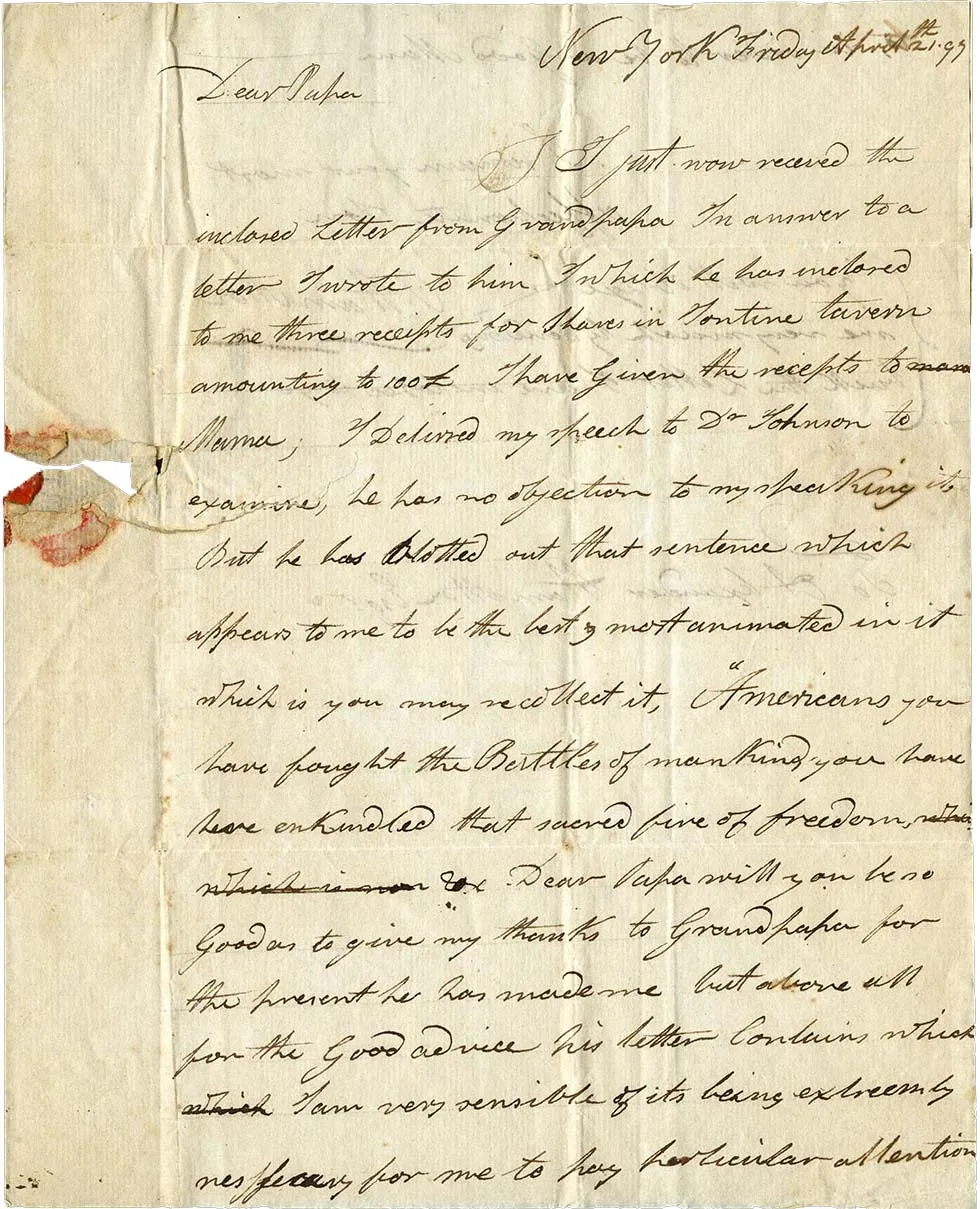 New York Friday April 21th 97
Dear Papa
I I just now receved the
inclosed Letter from Grandpapa In answer to a
letter I wrote to him In which he has inclosed
to me three receipts for Shares in Tontine tavern
amounting to 100£ I have Given the recepts to mama
Mama; I Delivred my speech to Dr Johnson to
examine, he has no objection to my speaKing it,
But he has Blotted out that sentence which
appears to me to be the best & most animated in it
which is you may recollect it, "Americans you
have fought the Battles of manKind you have
have enKindled that sacred fire of freedom, which
which is now &x. Dear Papa will you be so
Good as to give my thanks to Grandpapa for
the present he has made me but above all
for the Good advice his letter Contains which
which I am very sensible of its being extreemly
nessecary for me to pay perticular attention